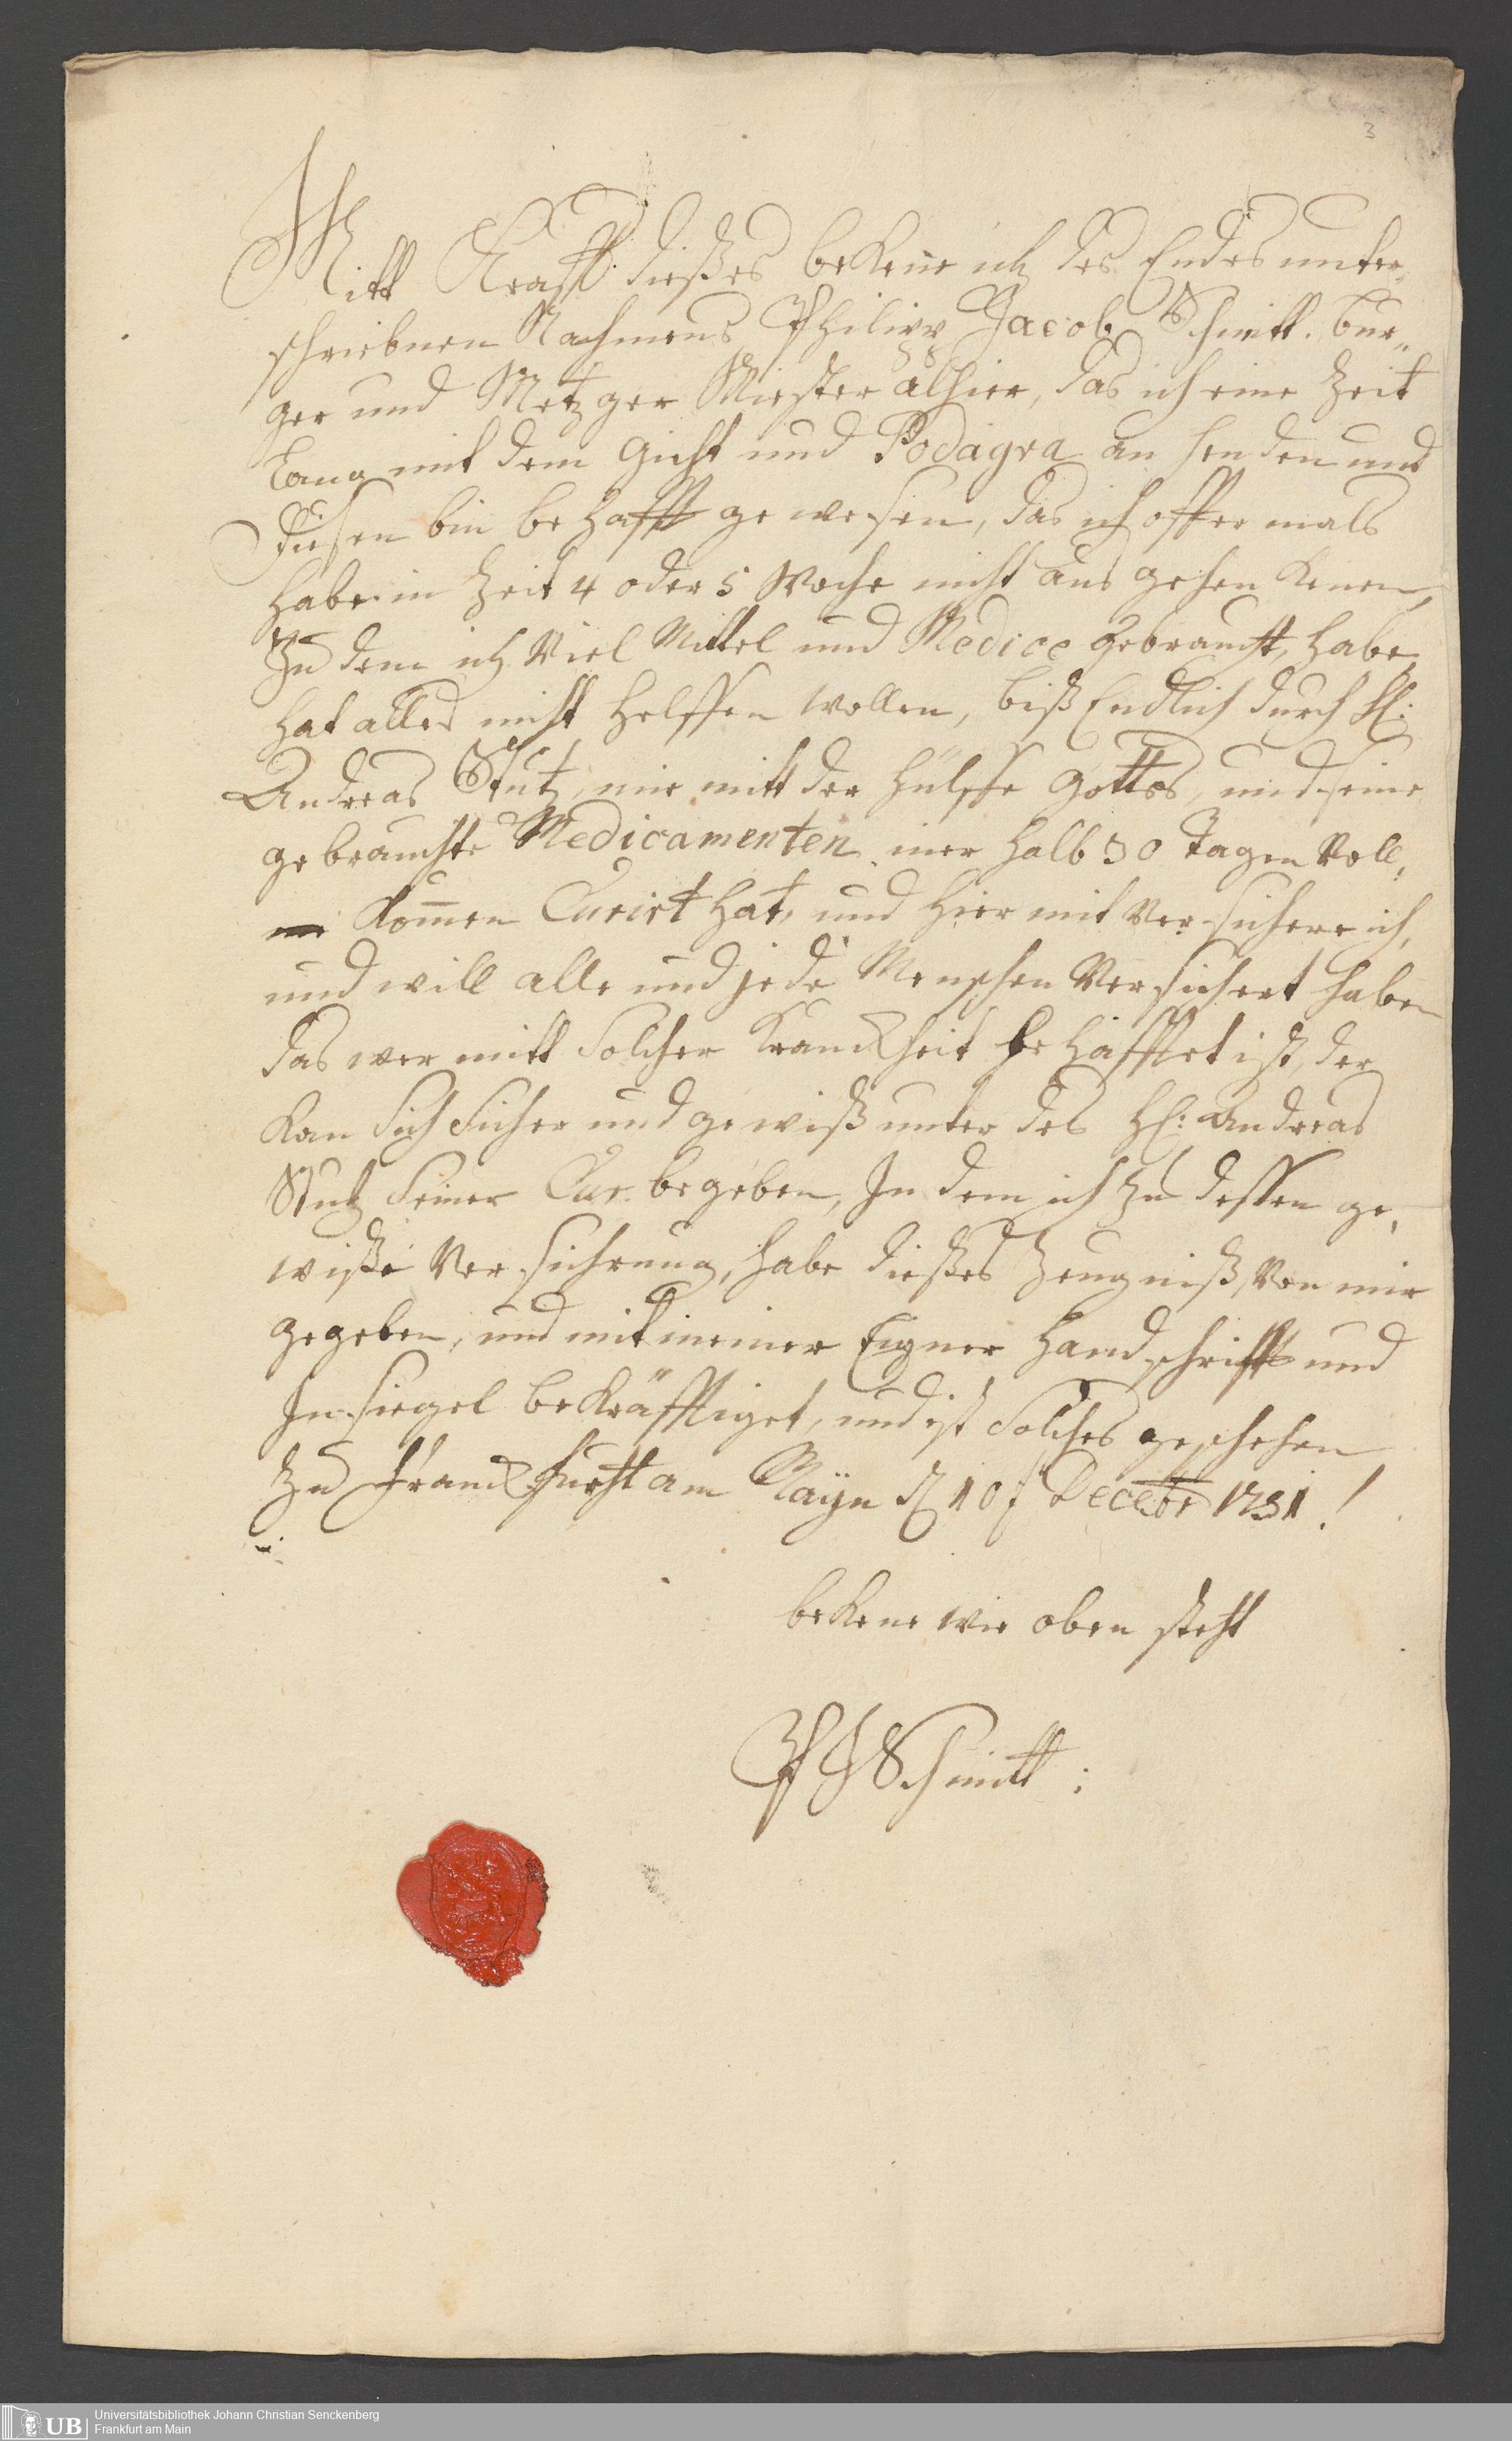 3
Mitt Krafft dießes bekene ich des Endes unter„
schriebnen Nahmens Philipp Jacob Schmitt. bur„
ger und Metzger Miester alhier, das ich eine Zeit
lang mit dem gicht und Podagra an henden und
Fiesen bin behafft gewesen, das ich offtermals
habe in Zeit 4 oder 5 Woche nicht aus gehen kenen,
In dem ich Viel Mittel und Medice gebraucht, habe,
hat alles nicht helffen wollen, biß Endlich durch H:
Andreas Stutz, mir mitt der hülffe gottes, und seine
gebrauchte Medicamenten iner halb 30 Tagen Voll,
komen Curirt hat, und hier mit Versichere ich,
und will alle und jede Menschen Versichert haben
das wer mitt Solcher Kranckheit behafftet ist, der
kan Sich Sicher und gewiß unter des H: Andreas
Stutz Seiner Cur begeben, In dem ich zu dessen ge,
wiße Versichrung, habe dießes Zeugniß, Von mir
gegeben, und mit meiner Eigner handschrifft und
In siegel bekräfftiget, und ist Solches geschehen
Zu Franckfurth am Mayn d 10 t Decebr 1731!
bekene wie oben steht
PJSchmitt:
UB
Universitätsbibliothek Johann Christian Senckenberg
Frankfurt am Main